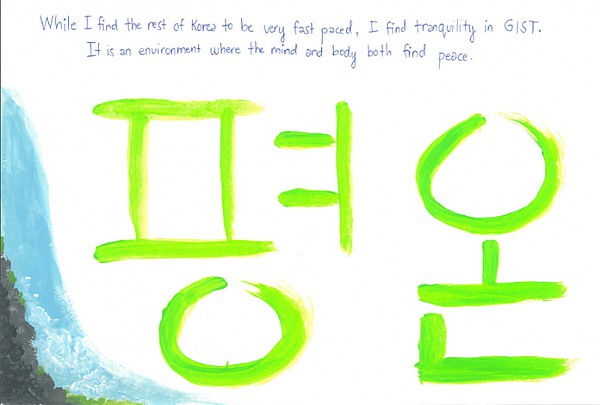 While I find the rest of Korea to be very fast paced, I find tranquility in GIST.
It is an environment where the mind and body both find peace.
평온